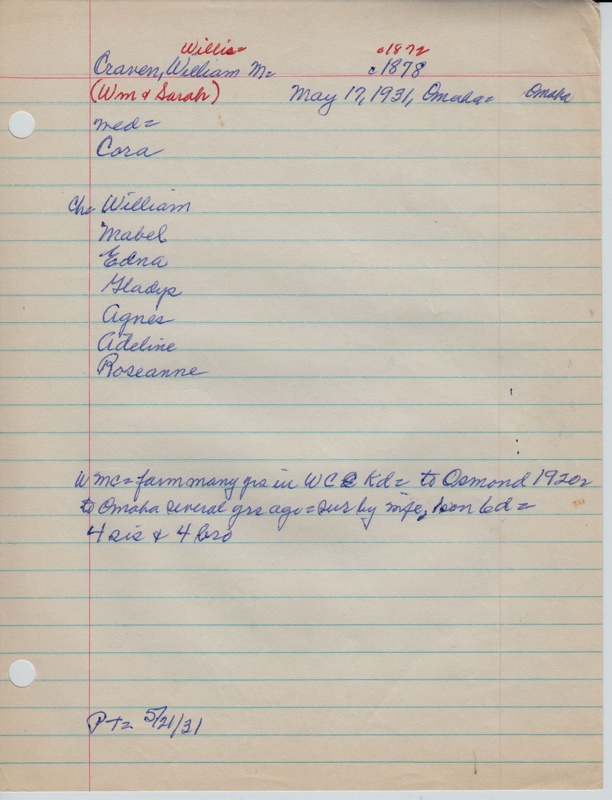 Willis= c1872
Craven, William M= c1878
(Wm & Sarah) May 17, 1931, Omaha= Omaha
med=
Cora
Ch= William
Mabel
Edna
Gladys
Agnes
Adeline
Roseanne
W mc= farm many yrs in WC Kd= to Osmond 1920=
to Omaha several yrs ago= sur by wife, 1 son 6 d=
4 sis & 4 bro
PT= 5/21/31